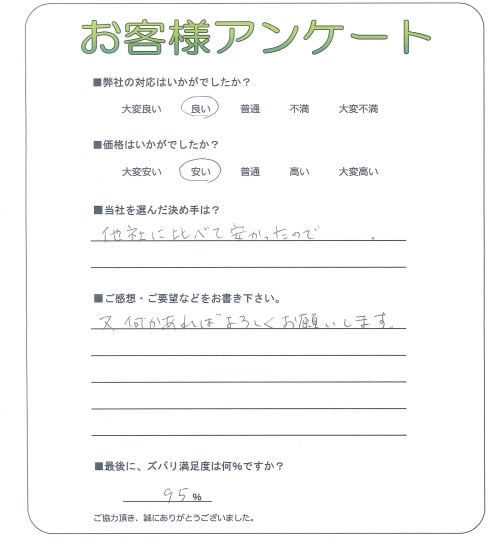 お客様アンケート
■弊社の対応はいかがでしたか？
大変良い 良い 普通 不満 大変不満
■価格はいかがでしたか？
大変安い 安い 普通 高い 大変高い
■当社を選んだ決め手は？
他社に比べて安かったので.
■ご感想・ご要望などをお書き下さい。
又何かあればよろしくお願いします。
■最後に、ズバリ満足度は何%ですか？
95%
ご協力頂き、誠にありがとうございました。